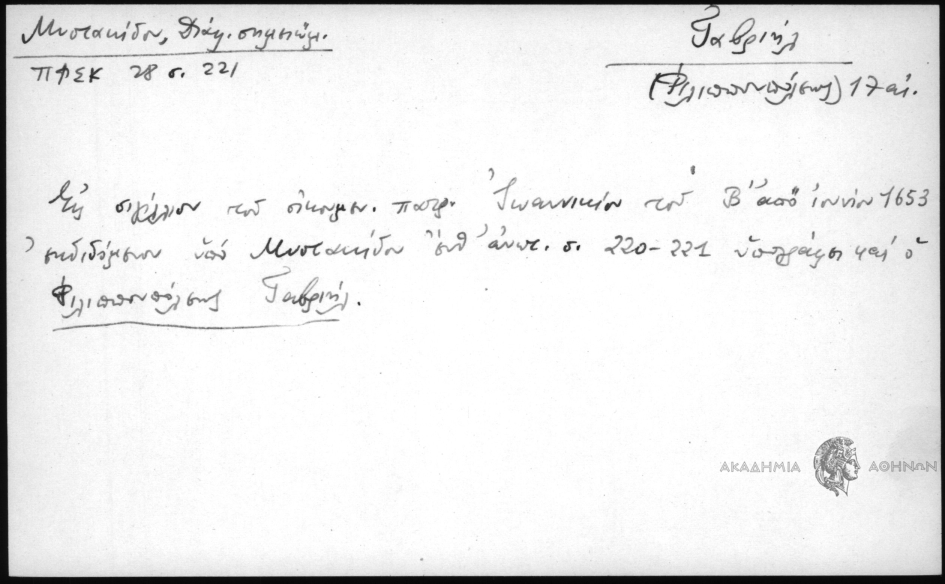 Μυστακίδου, Διάφ. σημειώμ.
ΠΦΣΚ 28 σ. 221
Γαβριήλ
(Φιλιππουπόλεως) 17 αἰ.
Εἰς σιγίλλιον τοῦ οἰκουμεν. πατρ. Ἰωαννικίου τοῦ Β' ἀπὸ ἰουνίου 1653
ἐκδιδόμενον ὑπὸ Μυστακίδου ἐνθ' ἀνωτ. σ. 220-221 ὑπογράφει καὶ ὁ
Φιλιππουπόλεως Γαβριήλ.
ΑΚΑΔΗΜΙΑ ΑΘΗΝΩΝ